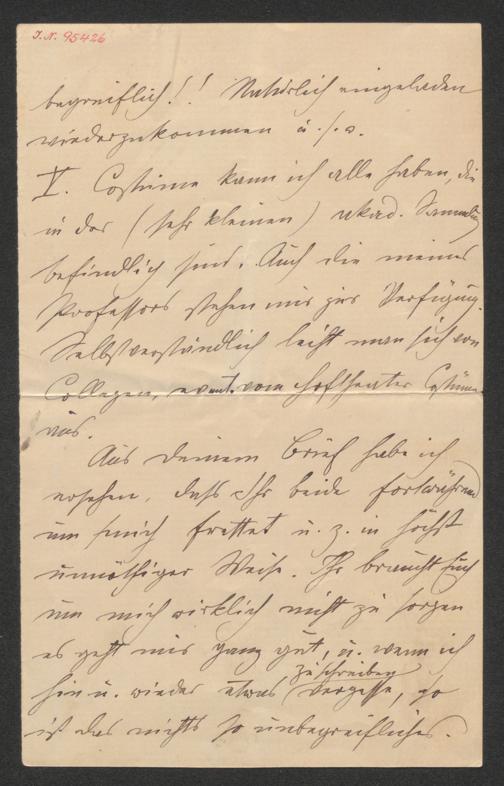 J.N. 95426
begreiflich!! Natürlich eingeladen
wiederzukommen u.s.w.
V. Costüme kann ich alle haben, die
in der (sehr kleinen) akad. Sammlung
befindlich sind. Auch die meines
Professors stehen mir zur Verfügung.
Selbstverständlich leiht man sich von
Collegen, event. vom Hoftheater Costüme
aus.
Aus deinem Brief habe ich
ersehen, daß Ihr beide fortwährend
um mich frettet u. z. in höchst
unnöthiger Weise. Ihr braucht Euch
um mich wirklich nicht zu sorgen
es geht mir ganz gut, u. wenn ich
hin u. wieder etwas zu schreiben vergesse, so
ist das nichts so unbegreifliches.